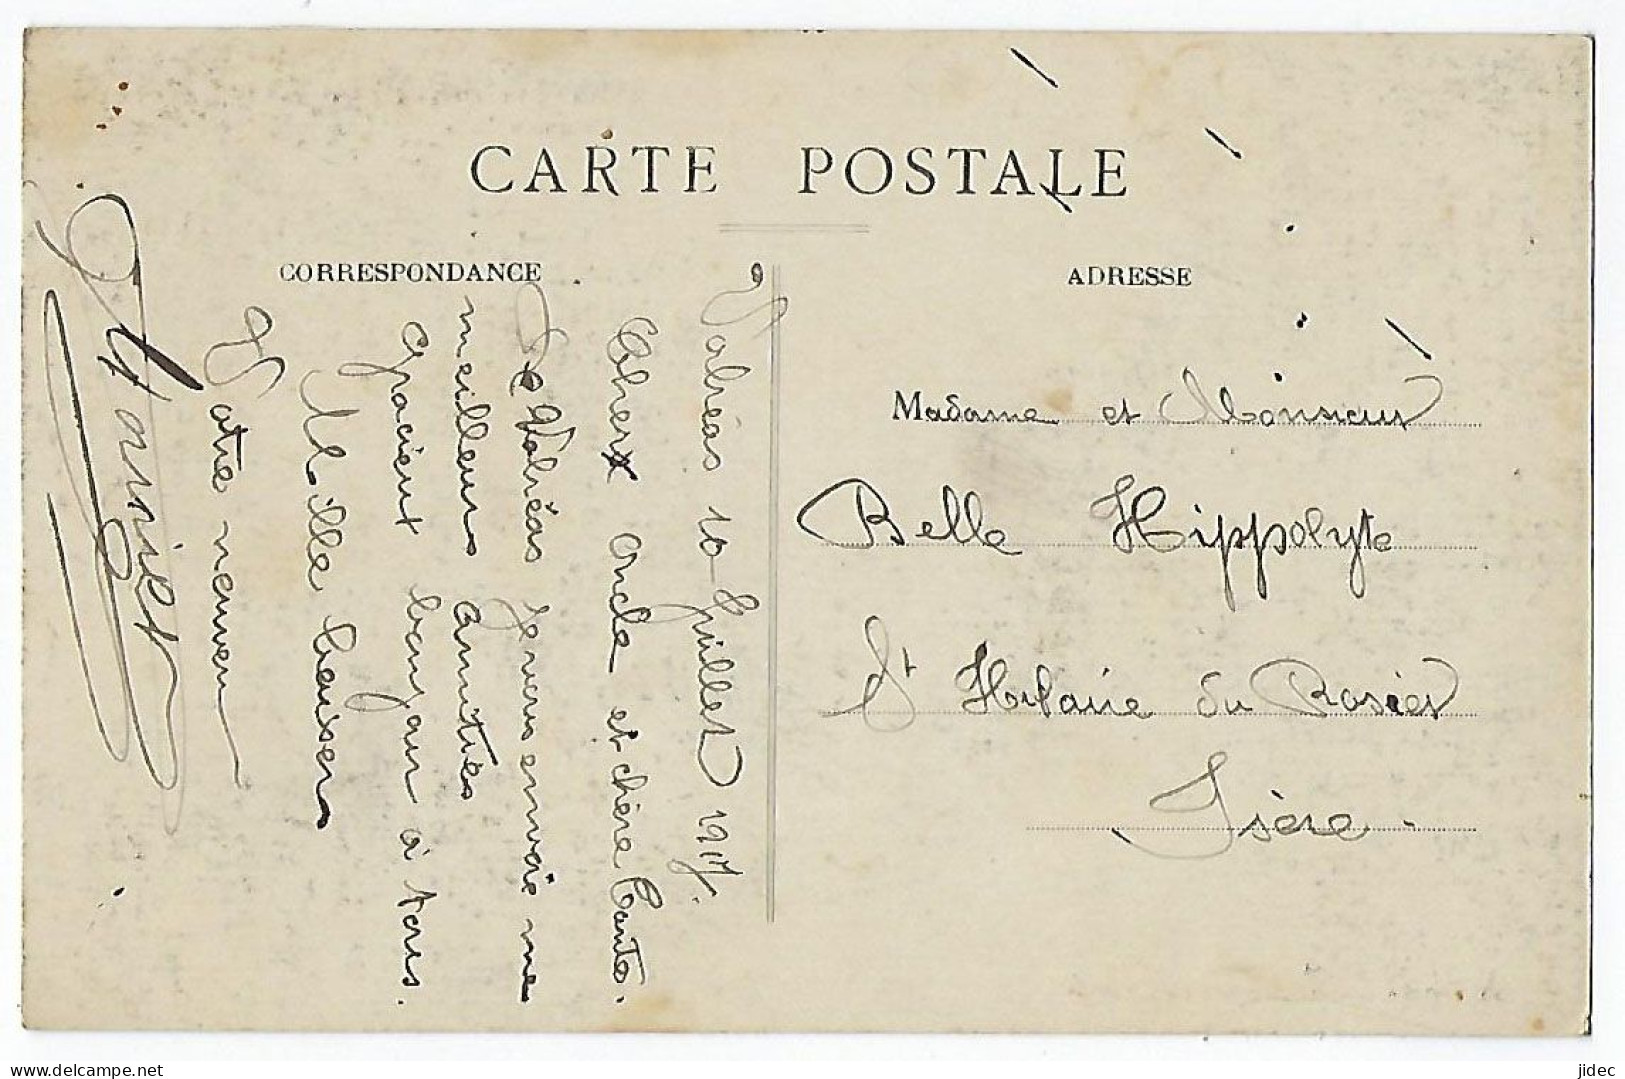 CARTE POSTALE
CORRESPONDANCE
ADRESSE
Valréas 10 Juillet 1917.
Cherx oncle et chère Tante.
De Valréas je vous envoie mes
meilleurs amitiés
gracieux bonjour à tous.
Mille baisers
Votre neuveu
Madame et Monsieur
Belle Hippolyte
St Hilaire du Rosier
Isère.
jidec